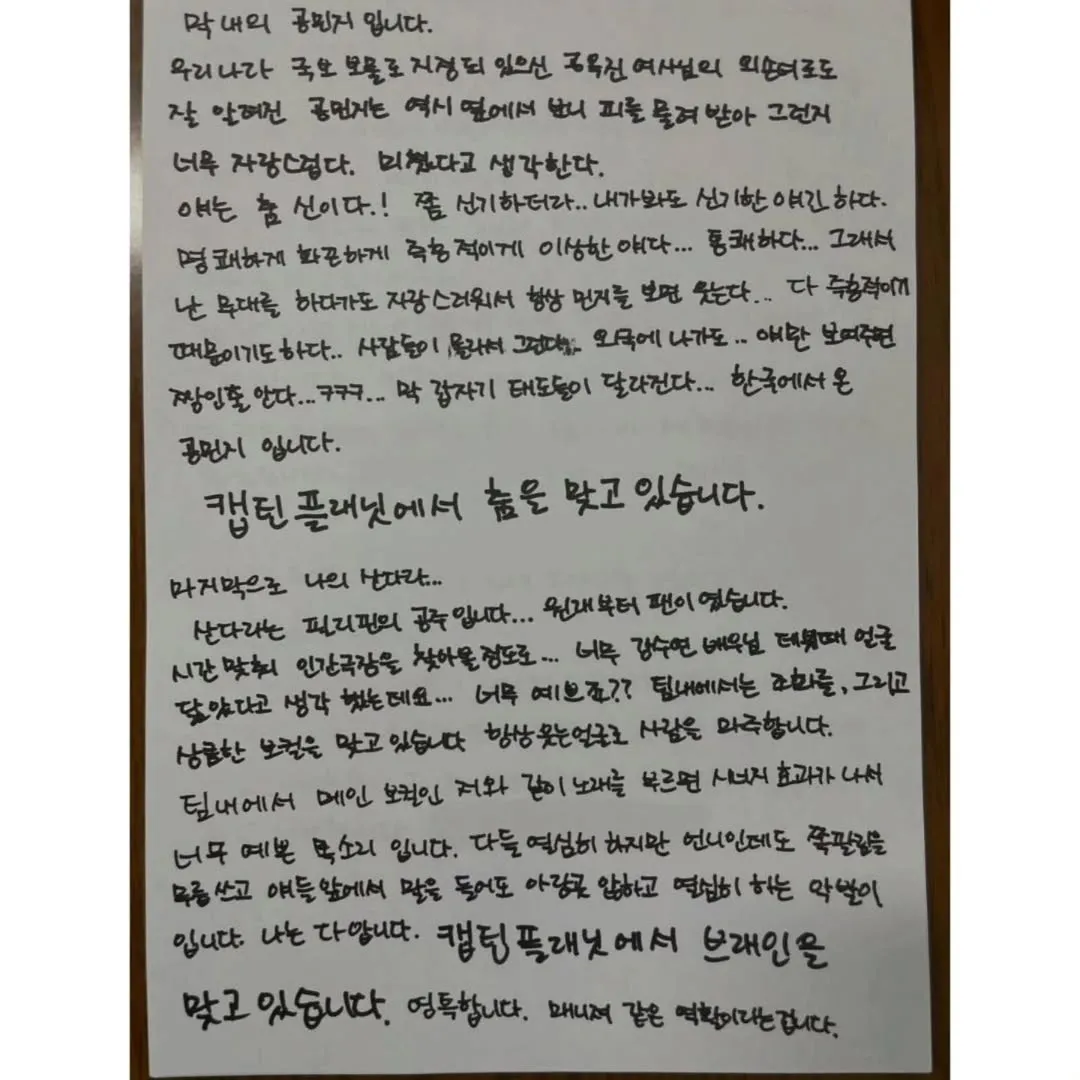 막내의 공민지 입니다.
우리나라 국보 보물로 지정되 있으신 공옥진 여사님의 외손녀로도
잘 알려진 공민지는 역시 옆에서 보니 피를 물려 받아 그런지
너무 자랑스럽다. 미쳤다고 생각한다.
얘는 춤 신이다.! 쫌 신기하더라.. 내가봐도 신기한 얘긴 하다.
명쾌하게 화끈하게 즉흥적이게 이상한 얘다... 통쾌하다... 그래서
난 무대를 하다가도 자랑스러워서 항상 민지를 보면 웃는다... 다 즉흥적이기
때문이기도하다.. 사람들이 몰라서 그런다... 외국에 나가도.. 얘만 보여주면
짱인줄 안다...ㅋㅋㅋ... 막 갑자기 태도들이 달라진다... 한국에서 온
공민지 입니다.
캡틴플래닛에서 춤을 맞고 있습니다.
마지막으로 나의 산다라...
산다라는 필리핀의 공주 입니다... 원래부터 팬이 였습니다.
시간 맞춰 인간극장을 찾아볼 정도로... 너무 강수연 배우님 데뷔때 얼굴
닮았다고 생각 했는데요... 너무 예쁘죠?? 팀내에서는 조화를, 그리고
상큼한 보컬을 맞고 있습니다 항상 웃는얼굴로 사람을 마주합니다.
팀내에서 메인 보컬인 저와 같이 노래를 부르면 시너지 효과가 나서
너무 예쁜 목소리 입니다. 다들 열심히 하지만 언니인데도 쪽팔림을
무릅 쓰고 얘들 앞에서 말을 들어도 아랑곳 않하고 열심히 하는 악발이
입니다. 나는 다 압니다. 캡틴플래닛에서 브래인을
맞고 있습니다. 영특합니다. 매니져 같은 역활이라는겁니다.